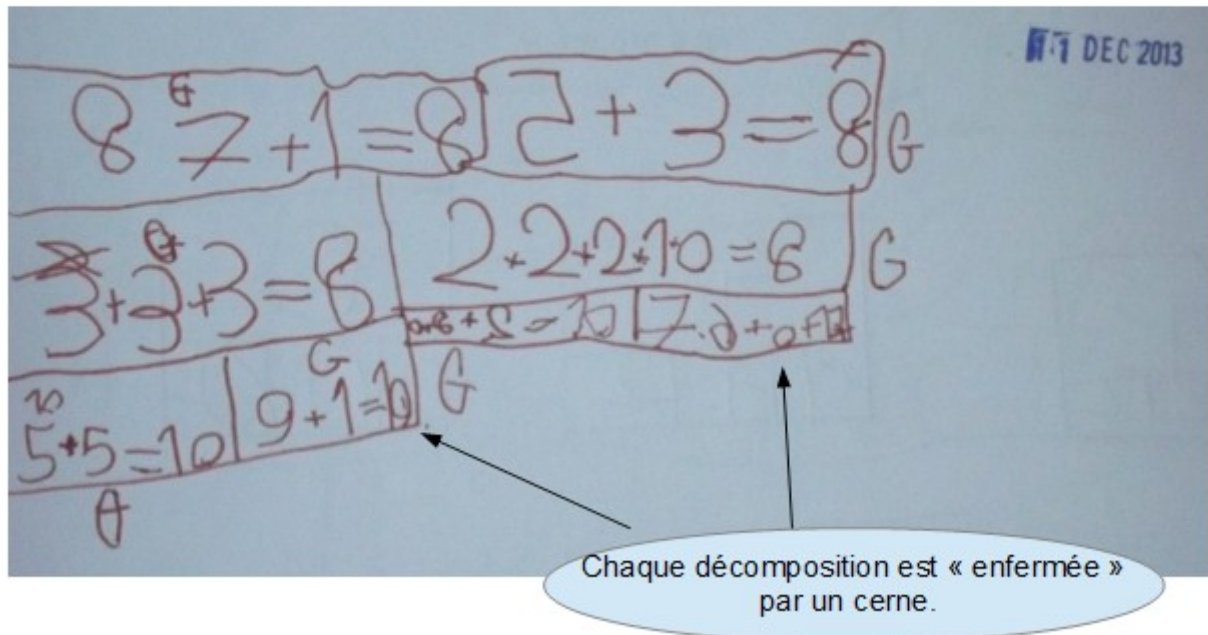 11 DEC 2013
8 7+1=8 5+3=8 G
G
3+3+3=8 2+2+2+1+0=8 G
G
5+5=10 9+1=10 G
G
10
Chaque décomposition est « enfermée »
par un cerne.